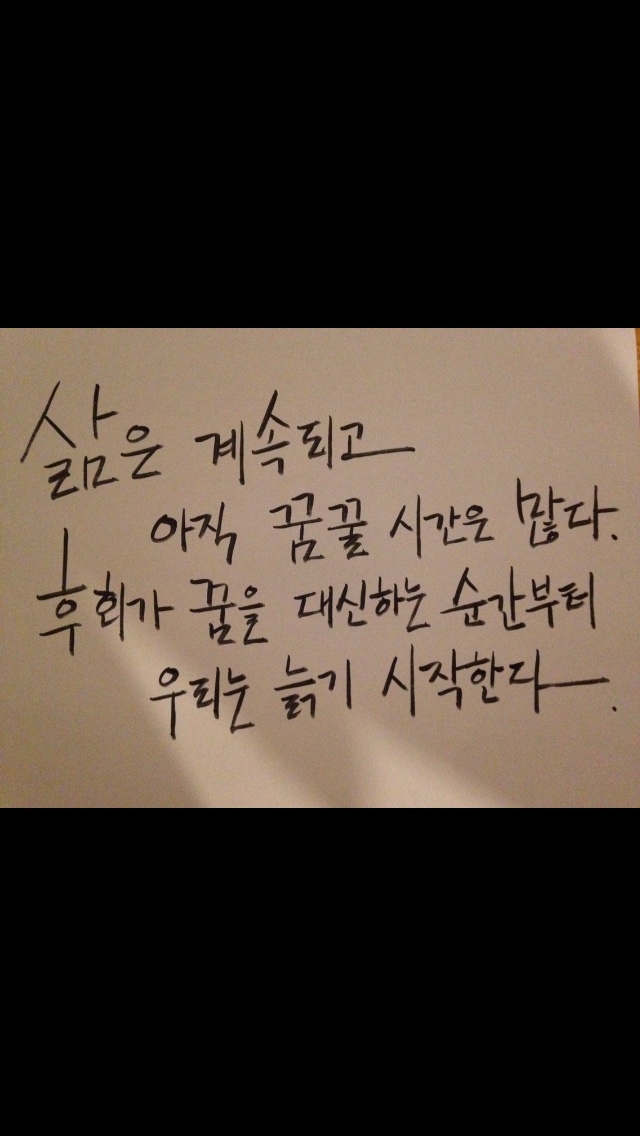 삶은 계속되고
아직 꿈꿀 시간은 많다.
후회가 꿈을 대신하는 순간부터
우리는 늙기 시작한다.